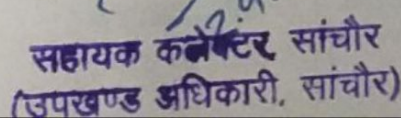 सहायक कलेक्टर सांचौर
(उपखण्ड अधिकारी, सांचौर)